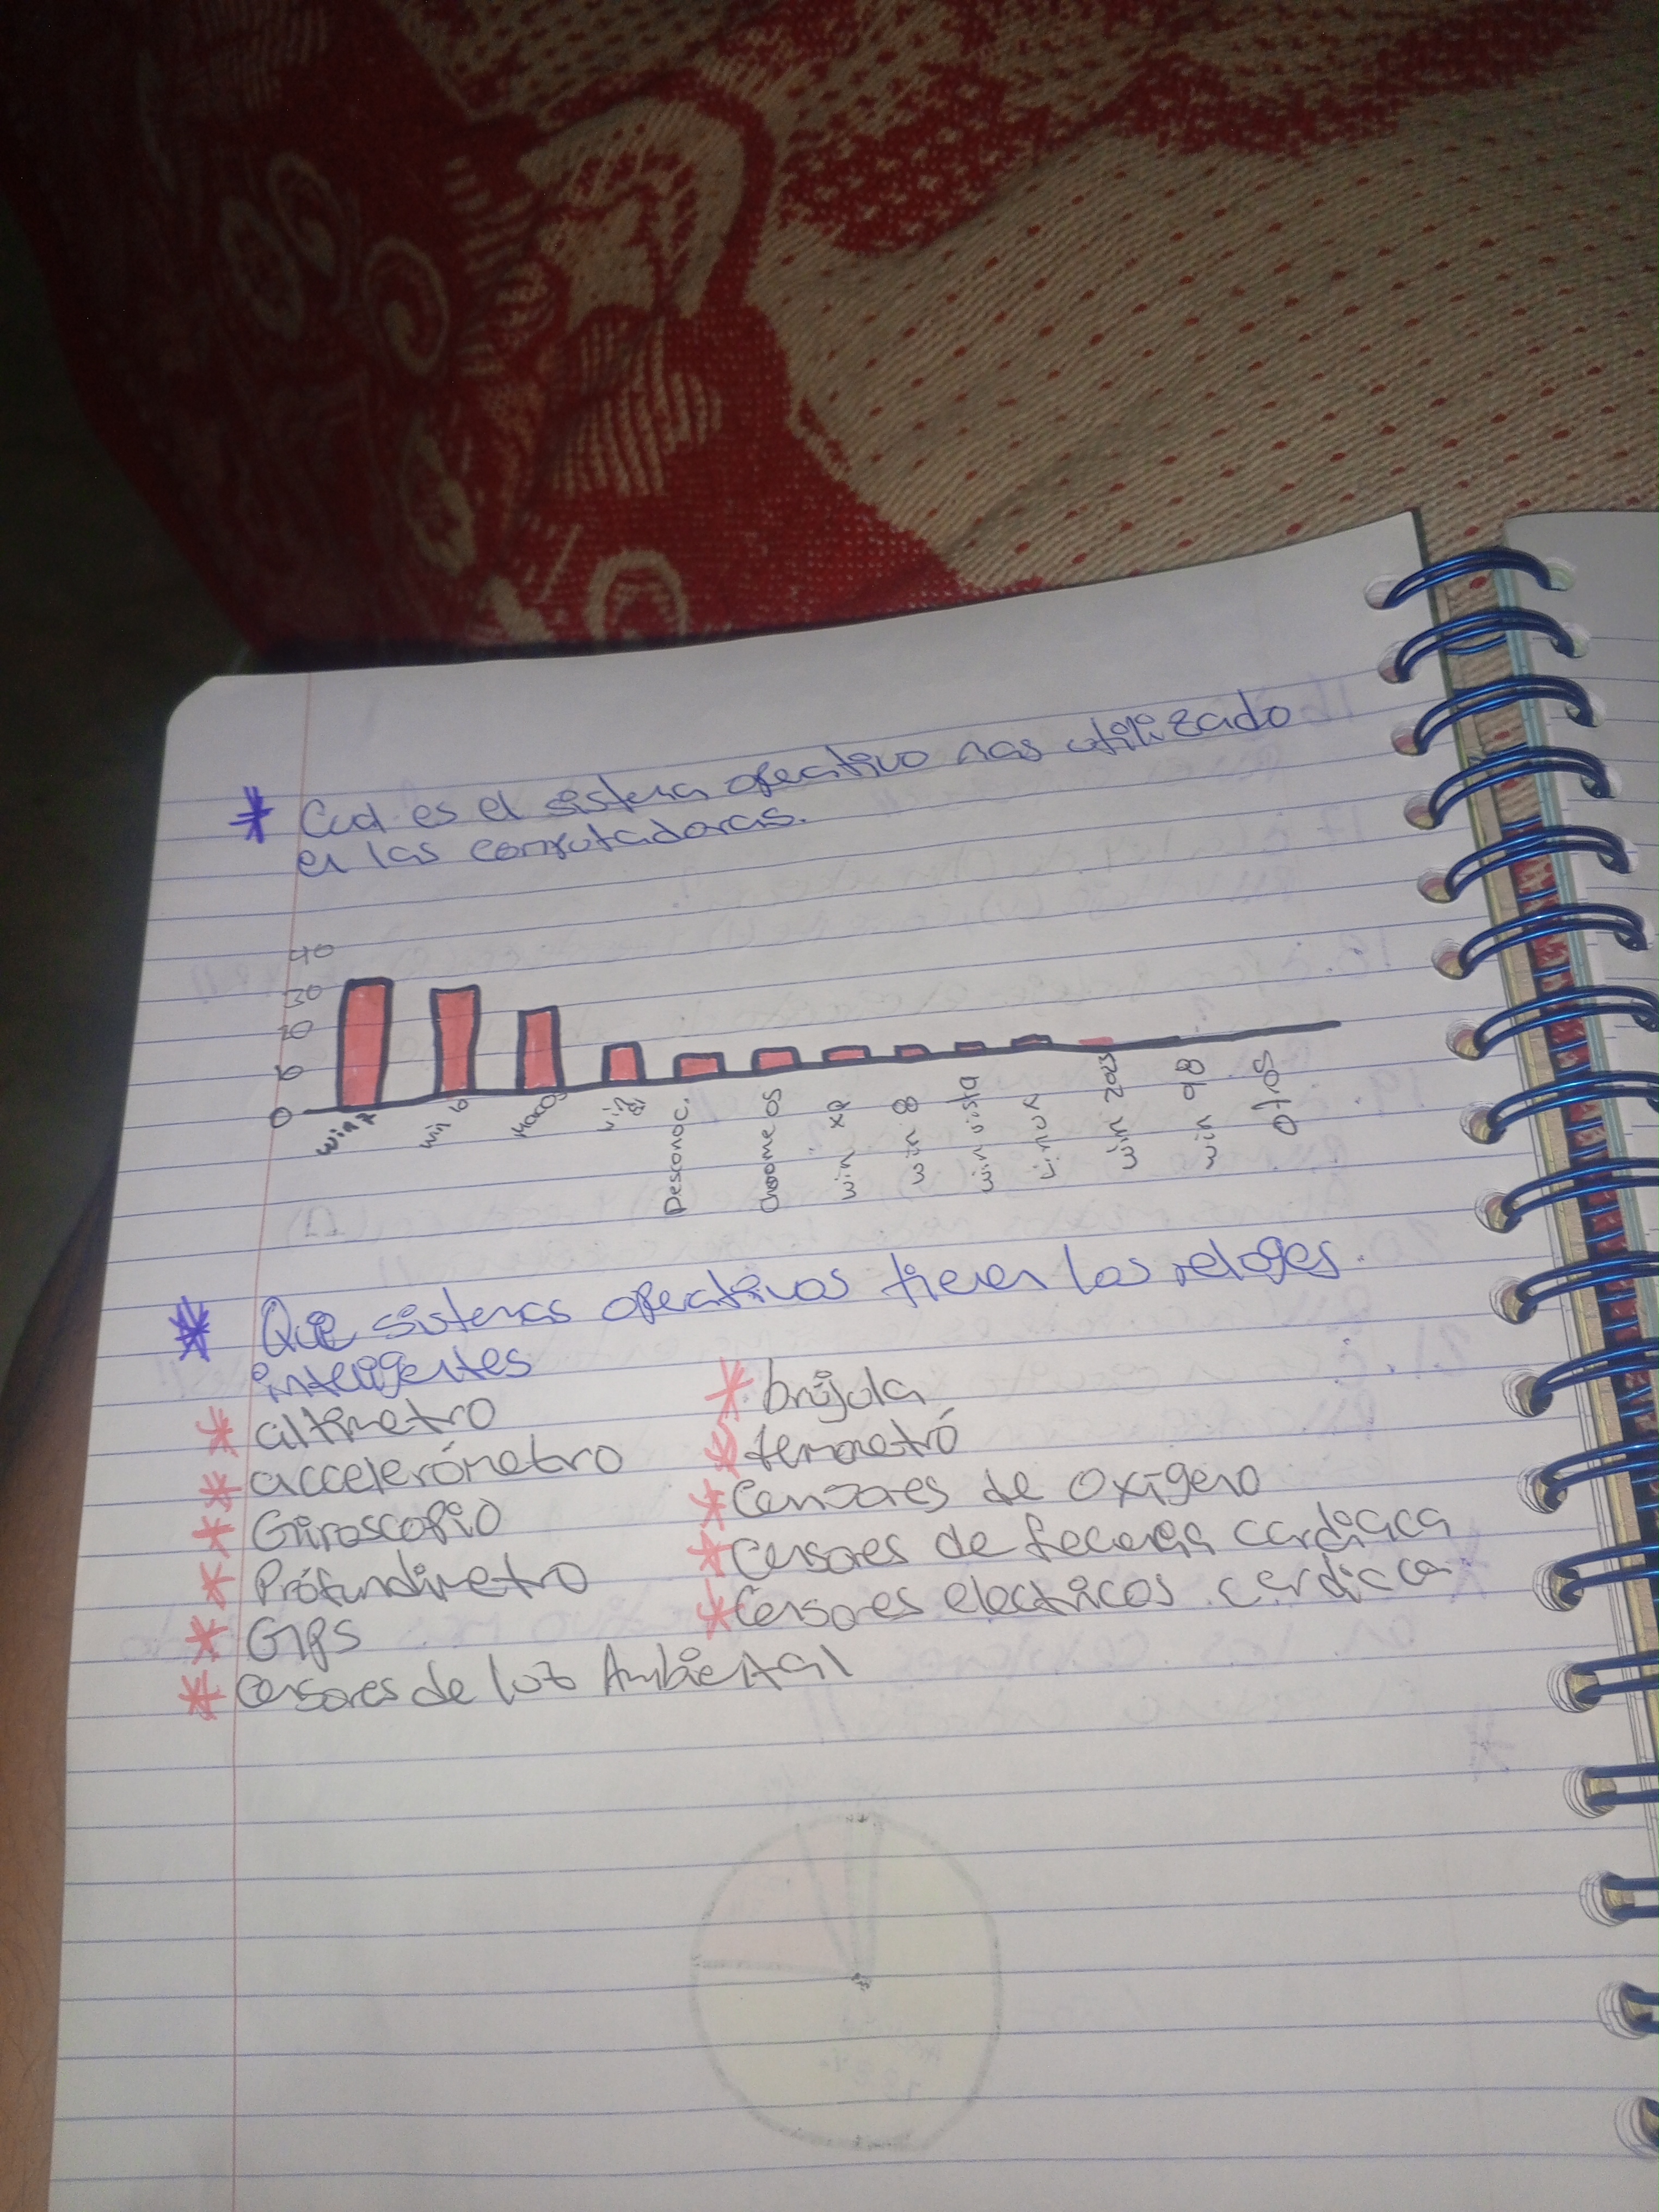 * Cual es el sistema operativo mas utilizado
en las computadoras.
40
30
20
10
0
win 7
win 10
MacOS
Desconoc.
Chroome OS
win xp
win 8
win vista
Linux
win 2003
win 98
OTROS
* Que sistemas operativos tienen los reloges
inteligentes
* altimetro
* accelerómetro
* Giroscopio
* Prófundimetro
* GPS
* Censores de luz Ambiental
* brújula
* termometró
* Censores de oxigeno
* Censores de cardiaca
* Censores electricos cardiaca